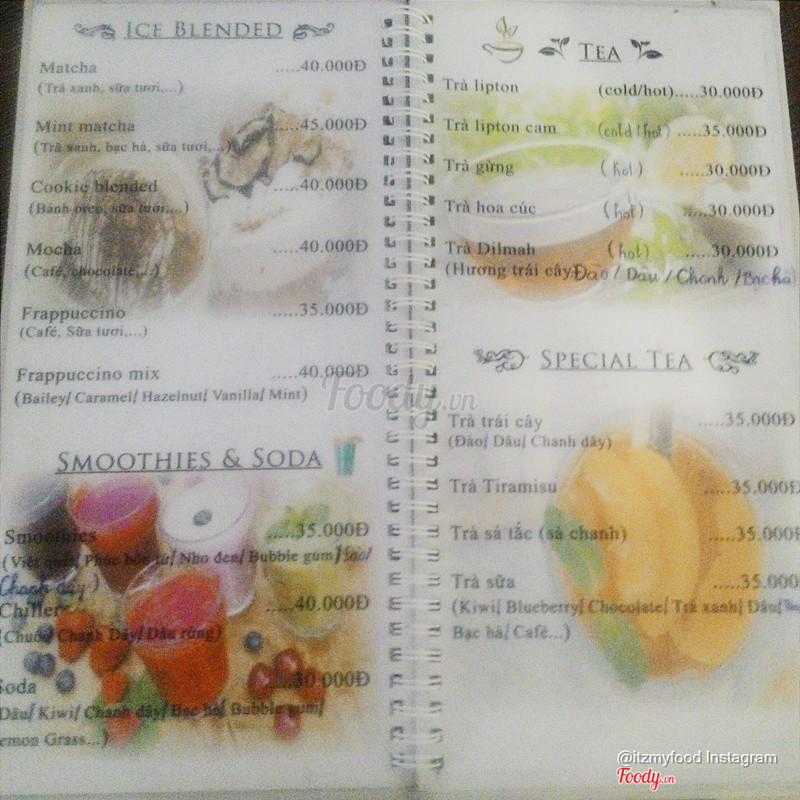 ICE BLENDED
Matcha .....40.000Đ
(Trà xanh, sữa tươi,...)
Mint matcha .....45.000Đ
(Trà xanh, bạc hà, sữa tươi,...)
Cookie blended .....40.000Đ
(Bánh oreo, sữa tươi,...)
Mocha .....40.000Đ
(Café, chocolate,...)
Frappuccino .....35.000Đ
(Café, Sữa tươi,...)
Frappuccino mix .....40.000Đ
(Bailey/ Caramel/ Hazelnut/ Vanilla/ Mint)
SMOOTHIES & SODA
Smoothies .....35.000Đ
(Việt quất/ Phúc bồn tử/ Nho đen/ Bubble gum/
Chanh dây)
Chiller .....40.000Đ
(Chuối/ Chanh Dây/ Dâu rừng)
Soda .....30.000Đ
Dâu/ Kiwi/ Chanh dây/ Bạc hà/ Bubble gum/
emon Grass...)
TEA
Trà lipton (cold/hot).....30.000Đ
Trà lipton cam (cold/hot) .....35.000Đ
Trà gừng (hot) .....30.000Đ
Trà hoa cúc (hot) .....30.000Đ
Trà Dilmah (hot) .....30.000Đ
(Hương trái cây: Đào / Dâu / Chanh / Bạc hà)
SPECIAL TEA
Trà trái cây .....35.000Đ
(Đào/ Dâu/ Chanh dây)
Trà Tiramisu .....35.000Đ
Trà sả tắc (sả chanh) .....35.000
Trà sữa .....35.000
(Kiwi/ Blueberry/ Chocolate/ Trà xanh/ Dâu/
Bạc hà/ Café...)
Foody.vn
@itzmyfood Instagram
Foody.vn